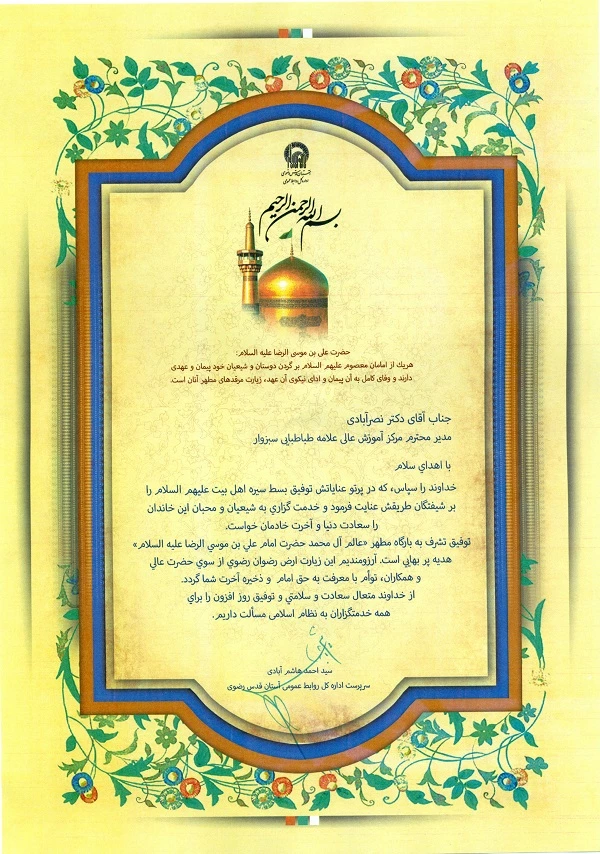 آستان قدس رضوی
بسم الله الرحمن الرحیم
حضرت علی بن موسی الرضا علیه السلام:
هریك از امامان معصوم علیهم السلام بر گردن دوستان و شیعیان خود پیمان و عهدی
دارند و وفای کامل به آن پیمان و ادای نیکوی آن عهد، زیارت مرقدهای مطهر آنان است.
جناب آقای دکتر نصرآبادی
مدیر محترم مرکز آموزش عالی علامه طباطبایی سبزوار
با اهدای سلام
خداوند را سپاس، که در پرتو عنایاتش توفیق بسط سیره اهل بیت علیهم السلام را
بر شیفتگان طریقش عنایت فرمود و خدمت گزاري به شیعیان و محبان این خاندان
را سعادت دنیا و آخرت خادمان خواست.
توفیق تشرف به بارگاه مطهر «عالم آل محمد حضرت امام علي بن موسي الرضا علیه السلام»
هدیه پر بهایی است. آرزومندیم این زیارت ارض رضوان رضوي از سوي حضرت عالي
و همکاران، توأم با معرفت به حق امام و ذخیره آخرت شما گردد.
از خداوند متعال سعادت و سلامتي و توفیق روز افزون را براي
همه خدمتگزاران به نظام اسلامی مسألت داریم.
سید احمد هاشم آبادی
سرپرست اداره کل روابط عمومی آستان قدس رضوی